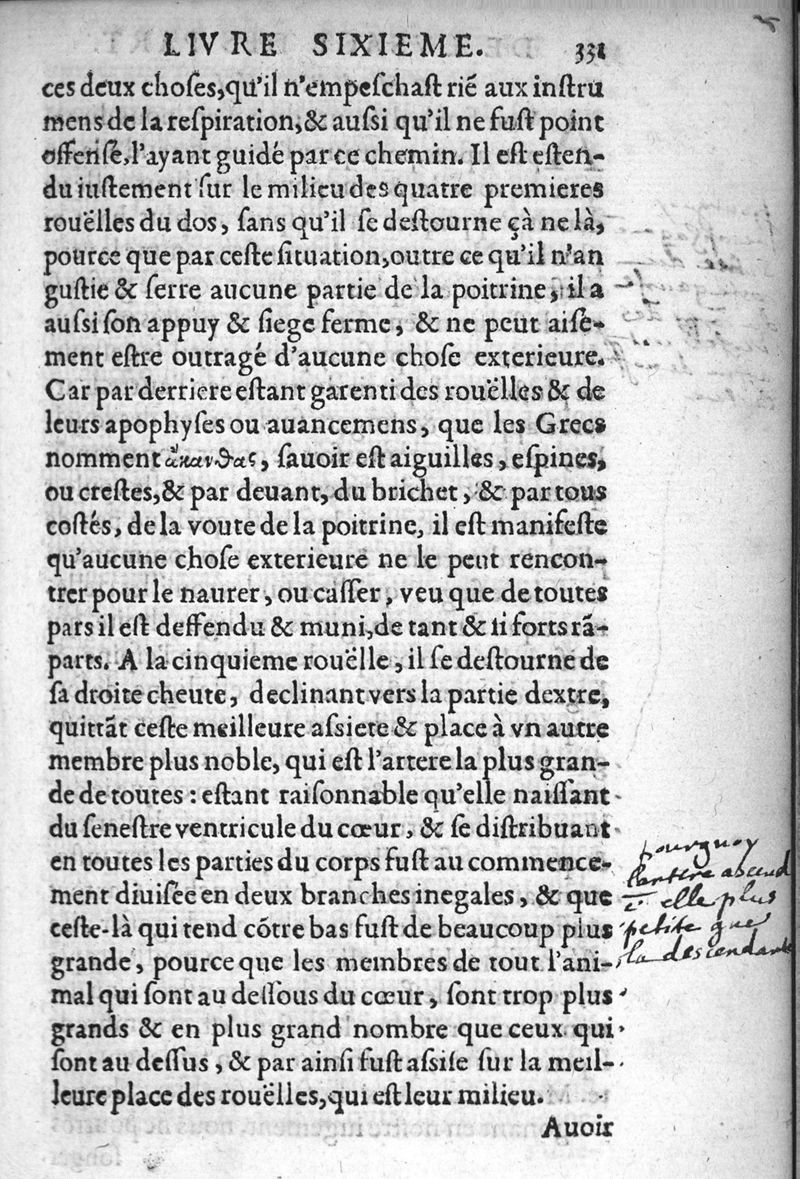 LIVRE SIXIEME. 331
ces deux choſes,qu'il n'empeſchaſt rié aux inſtru
mens de la reſpiration,& auſsi qu'il ne fuſt point
offenſé,l'ayant guidé par ce chemin. Il eſt eſten-
du iuſtement ſur le milieu des quatre premieres
rouëlles du dos, ſans qu'il ſe deſtourne çà ne là,
pource que par ceſte ſituation,outre ce qu'il n'an
guſtie & ſerre aucune partie de la poitrine, il a
auſsi ſon appuy & ſiege ferme, & ne peut aiſé-
ment eſtre outragé d'aucune choſe exterieure.
Car par derriere eſtant garenti des rouëlles & de
leurs apophyſes ou auancemens, que les Grecs
nomment ἄκανθας, ſauoir eſt aiguilles, eſpines,
ou creſtes,& par deuant, du brichet, & par tous
coſtés, de la voute de la poitrine, il eſt manifeſte
qu'aucune choſe exterieure ne le peut rencon-
trer pour le naurer, ou caſſer, veu que de toutes
pars il eſt deffendu & muni,de tant & ſi forts rã-
parts. A la cinquieme rouëlle, il ſe deſtourne de
ſa droite cheute, declinant vers la partie dextre,
quittãt ceſte meilleure aſsiete & place à vn autre
membre plus noble, qui eſt l'artere la plus gran-
de de toutes : eſtant raiſonnable qu'elle naiſſant
du ſeneſtre ventricule du cœur, & ſe diſtribuant
en toutes les parties du corps fuſt au commence-
ment diuiſée en deux branches inegales, & que
ceſte-là qui tend cõtre bas fuſt de beaucoup plus
grande, pource que les membres de tout l'ani-
mal qui ſont au deſſous du cœur, ſont trop plus
grands & en plus grand nombre que ceux qui
ſont au deſſus, & par ainſi fuſt aſsiſe ſur la meil-
leure place des rouëlles,qui eſt leur milieu.
Auoir
pourquoy
lartere ascend
elle plus
petite que
la descendante